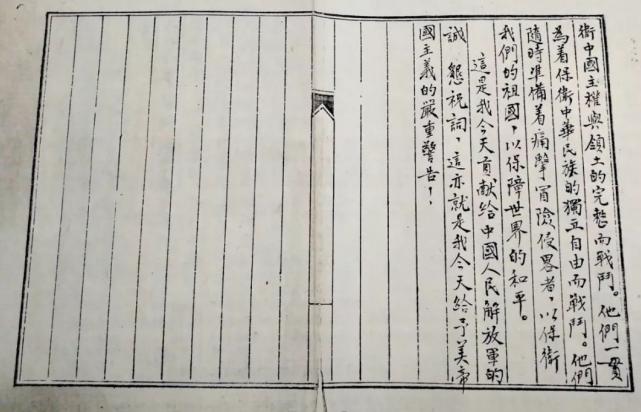 衛中國主權與領土的完整而戰鬥。他們一貫
為着保衛中華民族的獨立自由而戰鬥。他們
隨時準備着痛擊冒險侵畧者，以保衛
我們的祖國，以保障世界的和平。
這是我今天貢献給中國人民解放軍的
誠懇祝詞，這亦就是我今天給予美帝
國主義的嚴重警告！